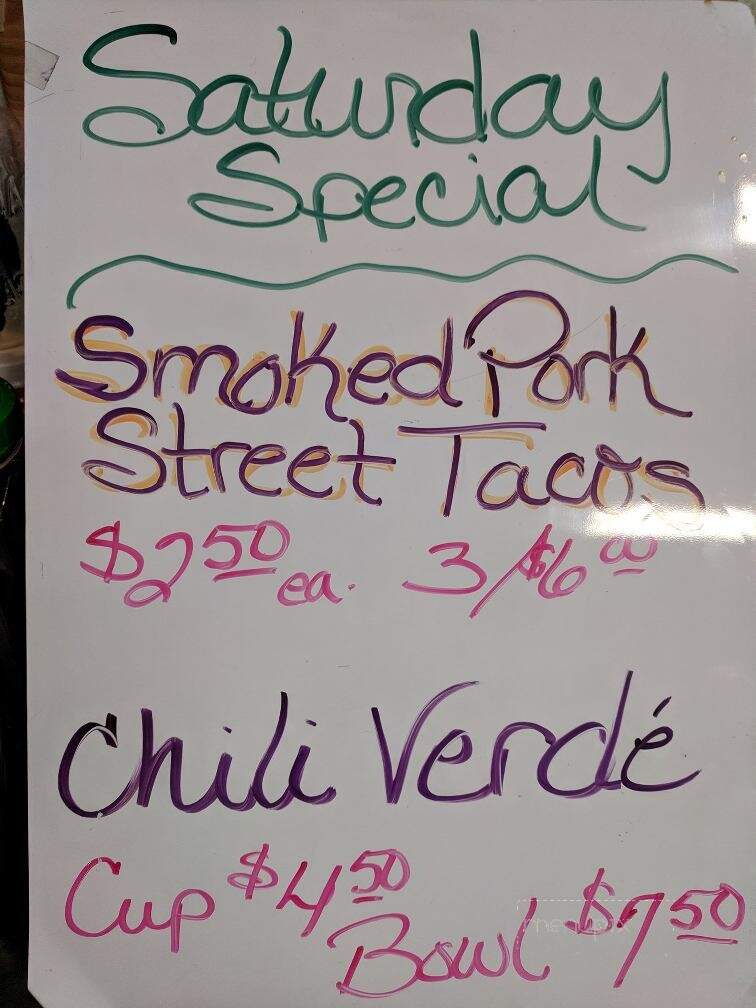 Saturday
Special
Smoked Pork
Street Tacos
$2 50 ea. 3/$6 00
Chili Verdé
Cup $4 50
Bowl $7 50